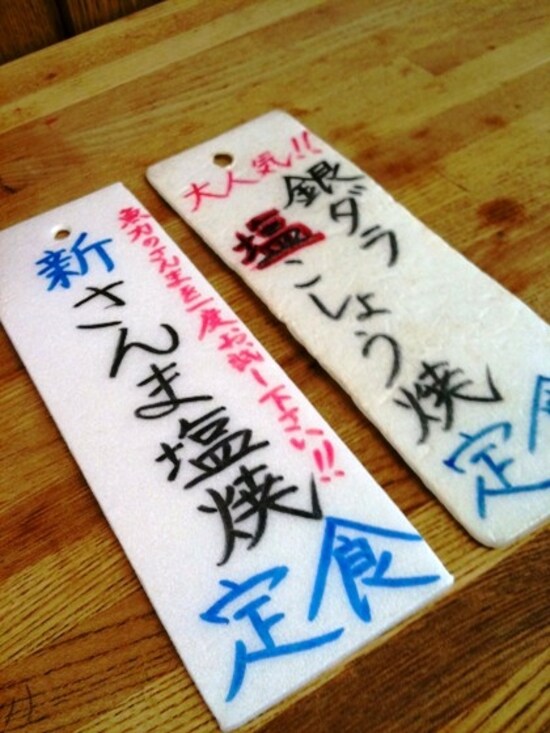 大人気!!
銀ダラ
塩こしょう焼
定食
新
さんま塩焼
定食
魚力のさんまを一度お試し下さい!!